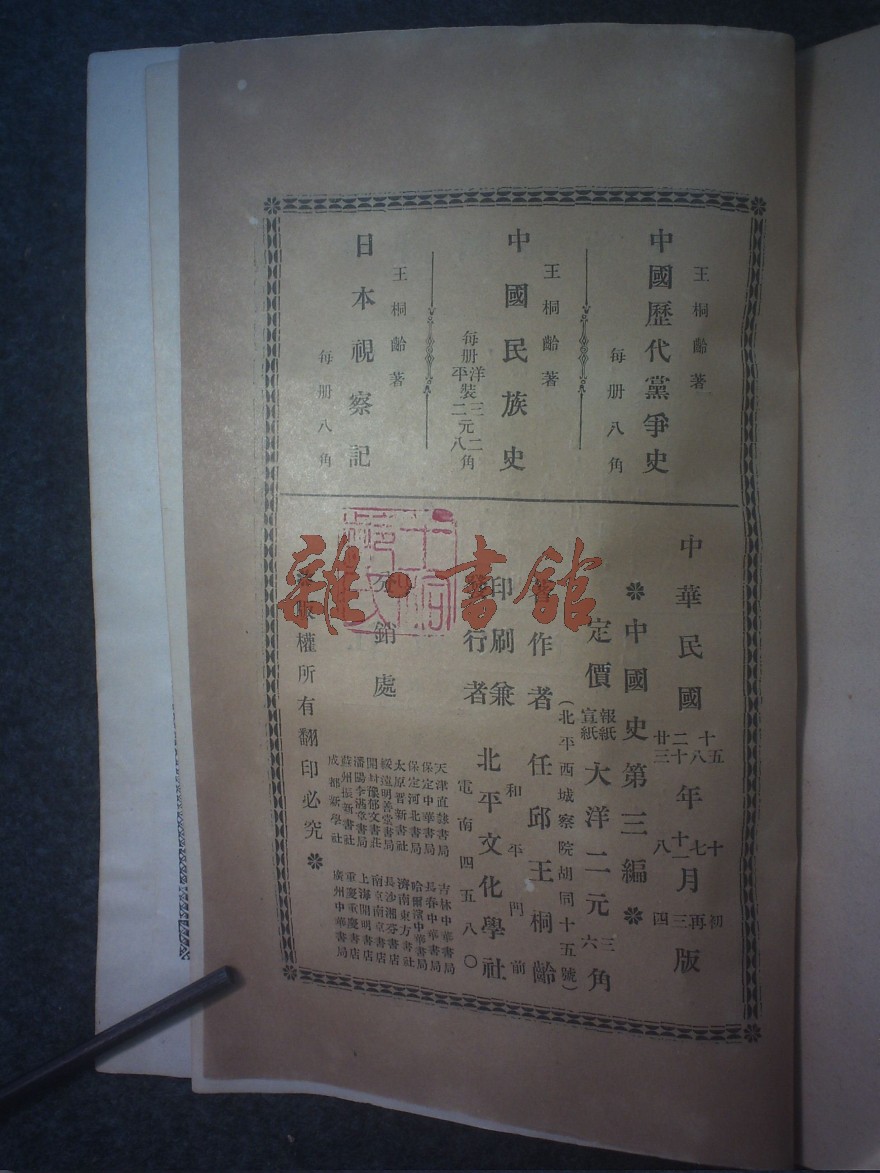 王桐齡著
中國歷代黨爭史
每册八角
王桐齡著
中國民族史
每册洋平裝三二元二八角
王桐齡著
日本視察記
每册八角
中華民國十五十八二十廿三年十七十一八月初再三四版
中國史第三編
定價報紙宣紙大洋二元三六角
(北平西城察院胡同十五號)
著作者任邱王桐齡
印刷兼
發行者
和平門前
北平文化學社
電南四五八〇
分銷處
天津直隸書局
保定中華書局
保定河北書局
太原晋新書社
綏遠明善堂書局
開封豫郁文書莊
瀋陽李湛章書局
蘇州振新書社
成都新學社
吉林中華書局
長春中華書局
哈爾濱中華書局
濟南東方書社
長沙湘芬書局
南京南京書店
上海開明書店
重慶重慶書店
廣州中華書局
版權所有翻印必究
雜·書館